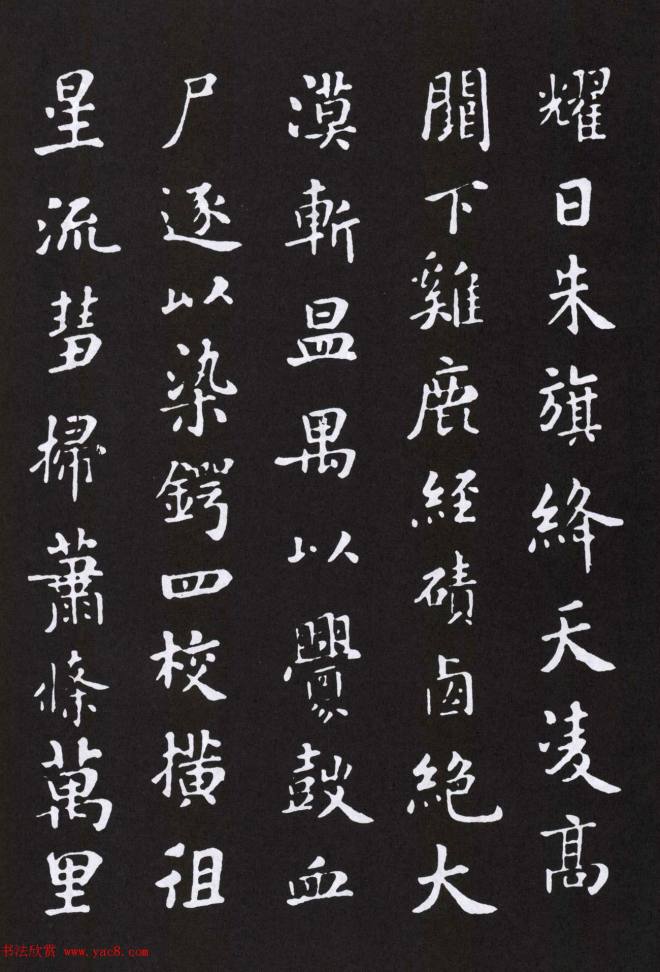 耀日朱旗絳天凌高
闕下雞鹿經磧鹵絕大
漠斬昷禺以釁鼓血
尸逐以染鍔四校橫徂
星流彗掃蕭條萬里
书法欣赏 www.yac8.com